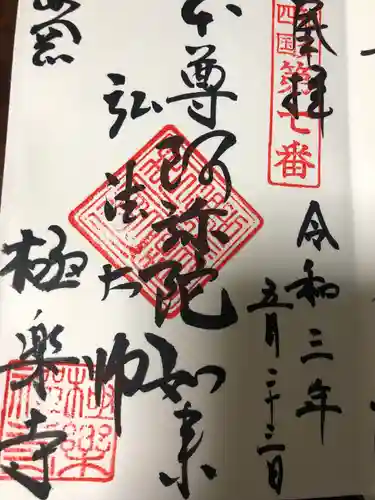 奉拝
四国第七番
令和三年
五月二十三日
本尊阿弥陀如来
弘法大師
極楽寺
極楽寺